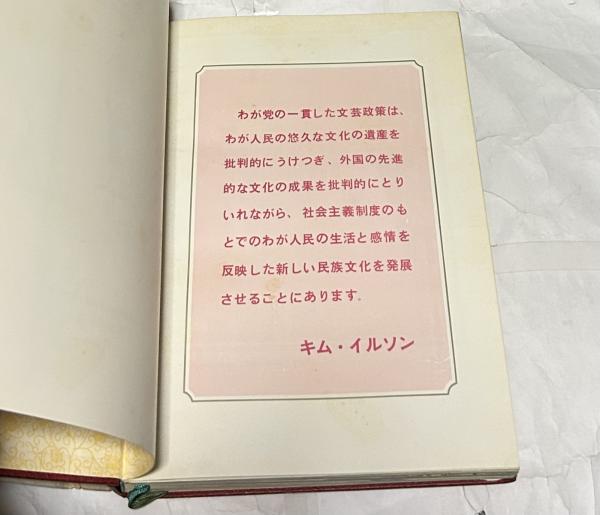 わが党の一貫した文芸政策は、
わが人民の悠久な文化の遺産を
批判的にうけつぎ、外国の先進
的な文化の成果を批判的にとり
いれながら、社会主義制度のも
とでのわが人民の生活と感情を
反映した新しい民族文化を発展
させることにあります。
キム・イルソン